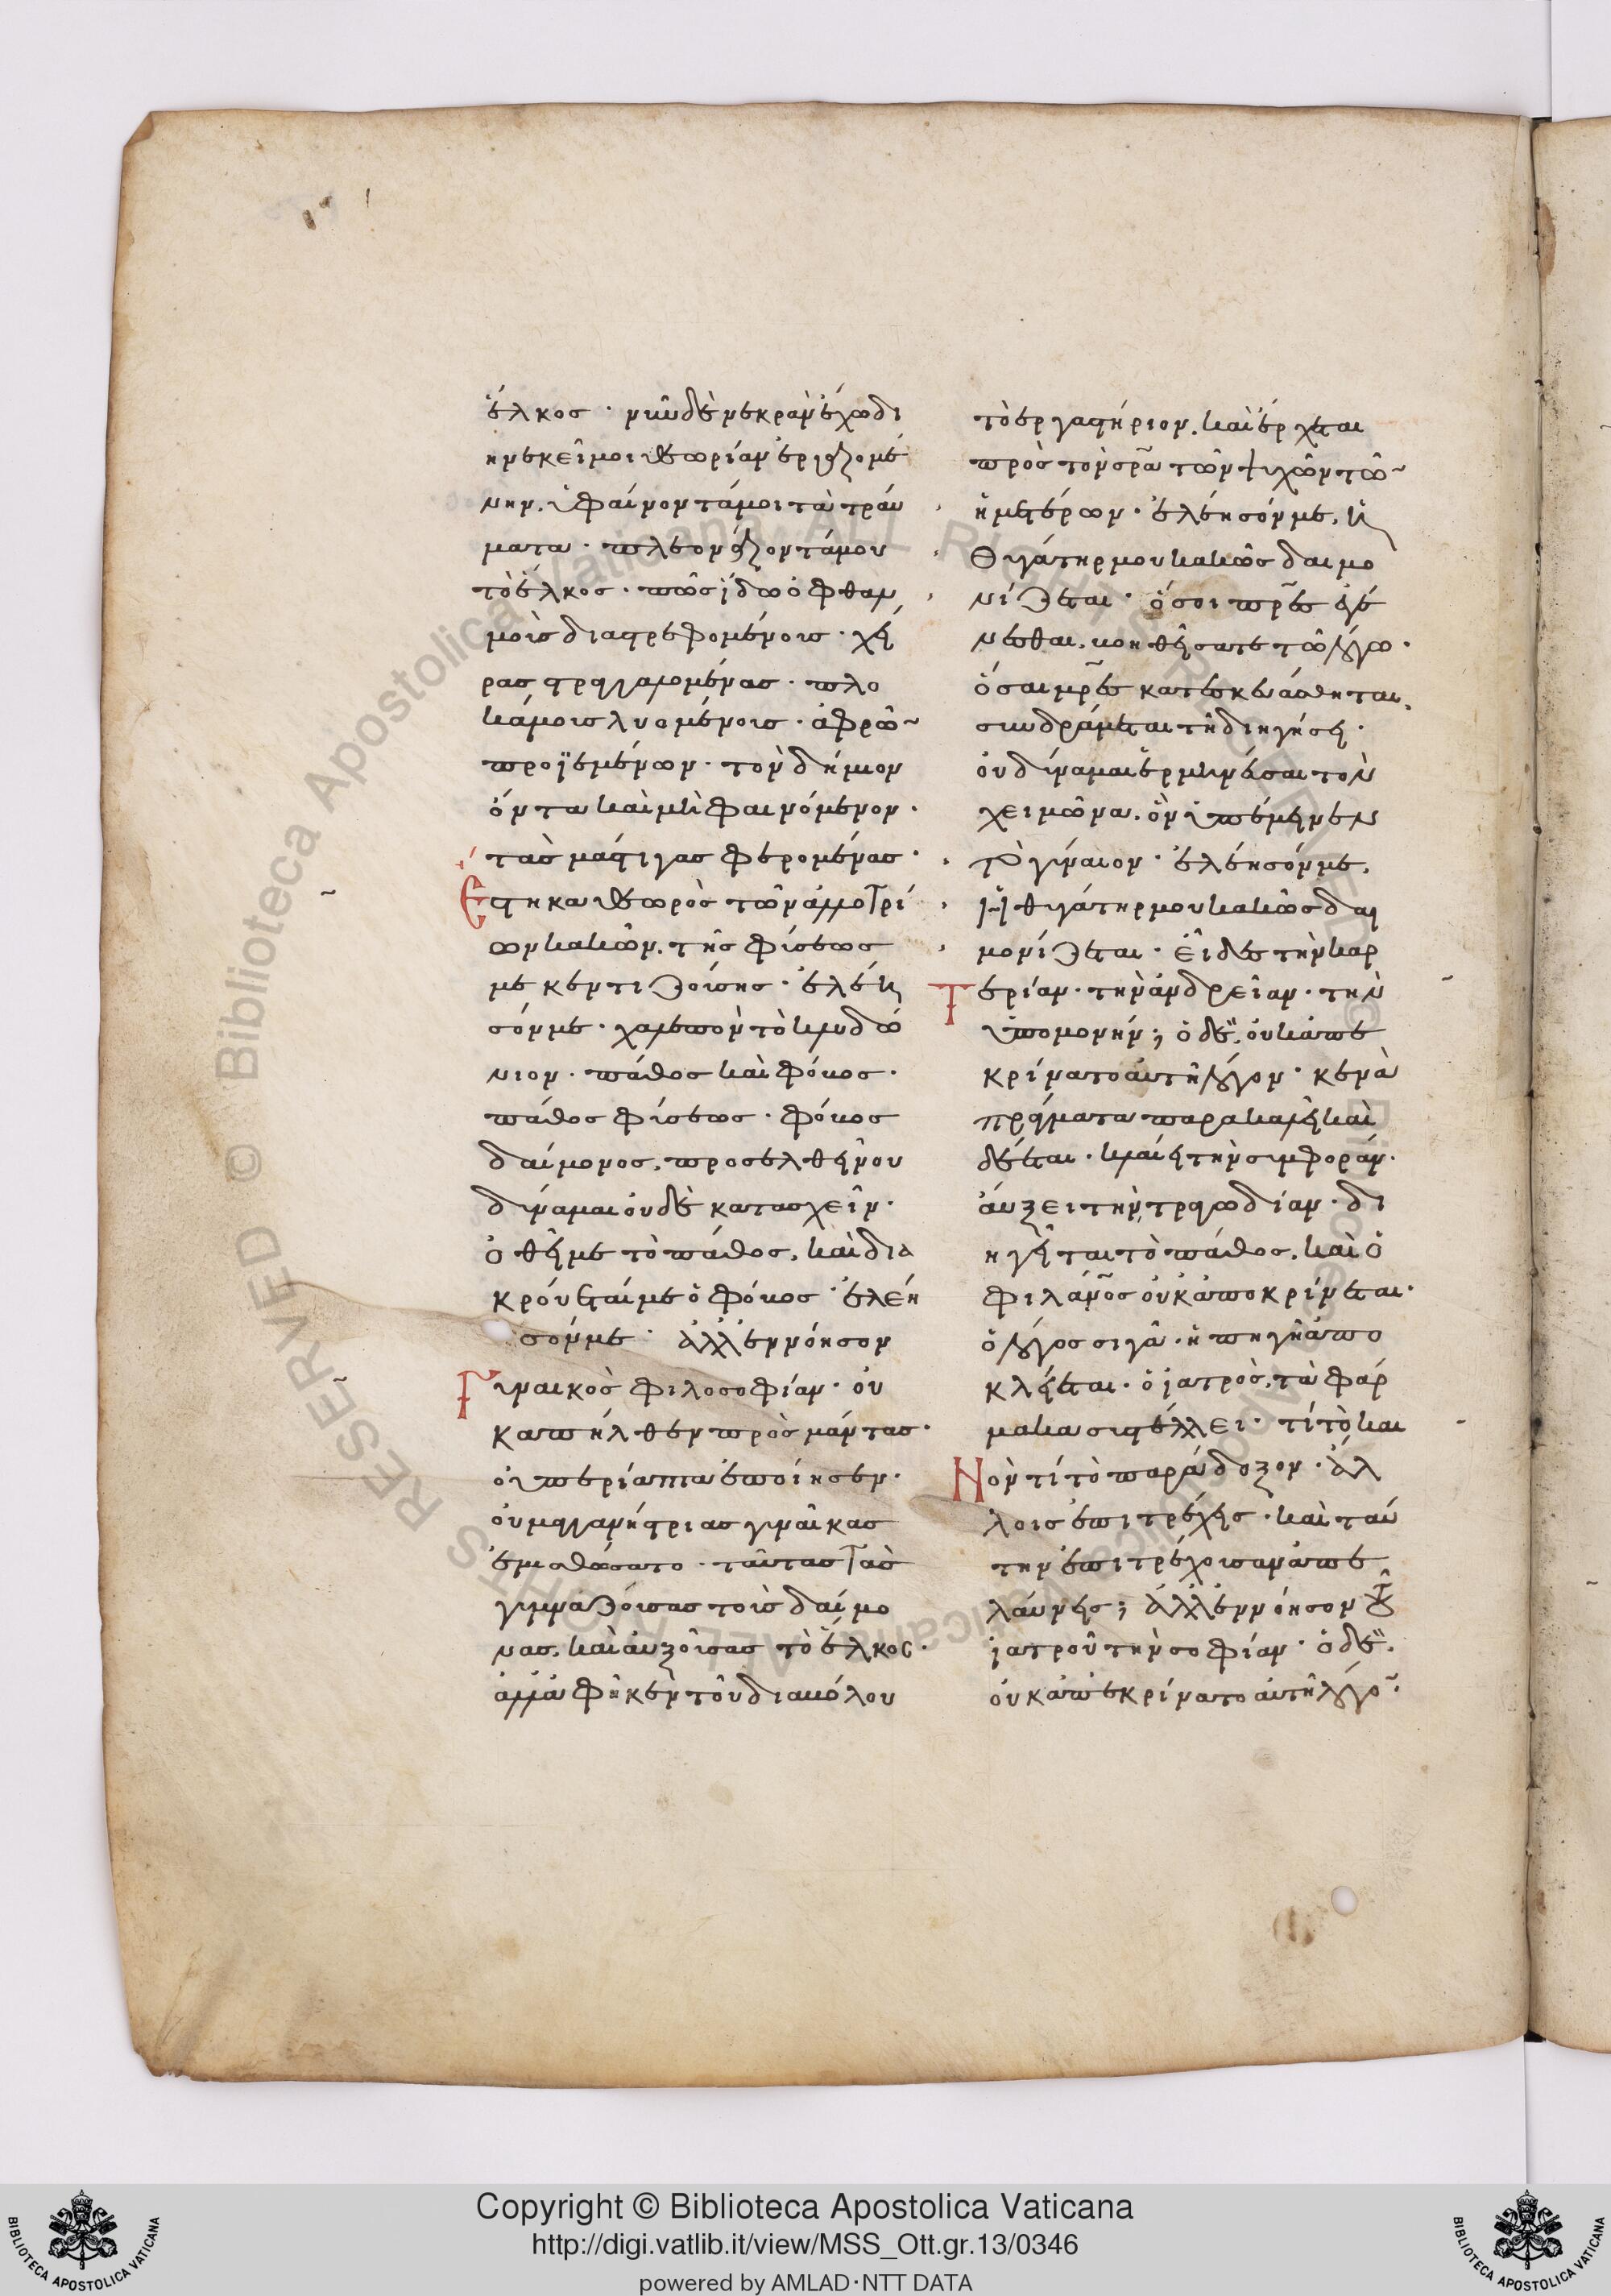 ἕλκος · νῦν δὲ νεκρὰν ἔχω δι
ηνεκεῖ μοι θεωρίαν ἐργαζομέ
νην. ὑφαίνονταί μοι τὰ τραύ
ματα · πλεονάζονταί μου
τὸ ἕλκος · πῶς ἴδω ὀφθαλ
μοὺς διαστρεφομένους · χεῖ
ρας στραγγαλουμένας · πλο
κάμους λυομένους · ἀφρῶ
προϊεμένων · τὸν δήμιον
ὄντα καὶ μὴ φαινόμενον ·
τὰς μάστιγας φερομένας ·
Ἕστηκα θεωρὸς τῶν ἀλλοτρί
ων κακῶν. τῆς φύσεως
με κεντιζούσης · ἐλέη
σόν με · χαλεπὸν τὸ κλυδώ
νιον · πάθος καὶ φόβος ·
πάθος φύσεως · φόβος
δαίμονος. προσελθεῖν οὐ
δύναμαι οὐδὲ κατασχεῖν ·
ὀθεῖ με τὸ πάθος. καὶ δια
κρούεταί με ὁ φόβος · ἐλέη
σόν με · ἀλλ' ἐννόησον
Γυναικὸς φιλοσοφίαν · οὐ
κ ἀπῆλθεν πρὸς μάντας ·
οὐ περίαπτα ἐποίησεν ·
οὐ μαγγανίστριας γυναῖκας
ἐμισθώσατο · ταύτας τὰς
γυμναζούσας τοὺς δαίμο
νας. καὶ αὐξούσας τὸ ἕλκος ·
ἀλλὰ φῆκεν τοῦ διαβόλου
τὸ ἐργαστήριον. καὶ ἔρχεται
πρὸς τὸν σρα τῶν ψυχῶν τῶ
ἡμετέρων · ἐλέησόν με. ἡ
θυγάτηρ μου κακῶς δαιμο
νίζεται · ὅσοι πρες ἐγέ
νεσθαι. βοηθήσατε τῶ λόγω ·
ὅσαι μρες κατεσκευάσθηται.
συνδράμεται τῆ διηγήσει ·
οὐ δύναμαι ἑρμηνεῦσαι τὸν
χειμῶνα. ὃν ὑπέμεινεν
τὸ γύναιον · ἐλέησόν με.
ἡ θυγάτηρ μου κακῶς δαι
μονίζεται · εἶδες τὴν καρ
Τερίαν · τὴν ἀνδρείαν · τὴν
ὑπομονήν; ὁ δὲ, οὐκ ἀπε
κρίνατο αὐτῆ λόγον · κενὰ
πράγματα παρακαλεῖ καὶ
δέεται · κλαίει τὴν συμφοράν ·
αὔξει τὴν τραγωδίαν · δι
ηγεῖται τὸ πάθος. καὶ ὁ
φιλανος οὐκ ἀποκρίνεται ·
ὁ λόγος σιγᾶ · ἡ πηγὴ ἀπο
κλείεται · ὁ ἰατρὸς. τὰ φάρ
μακα συστέλλει · τί τὸ και
Νὸν τί τὸ παράδοξον · ἄλ
λοις ἐπιτρέχεις · καὶ ταύ
την ἐπιτρέχουσαν ἀπε
λαύνεις; ἀλλ' ἐννόησον τοῦ
ἰατροῦ τὴν σοφίαν · ὁ δὲ,
οὐκ ἀπεκρίνατο αὐτῆ λόγο ·
Copyright © Biblioteca Apostolica Vaticana
http://digi.vatlib.it/view/MSS_Ott.gr.13/0346
powered by AMLAD·NTT DATA